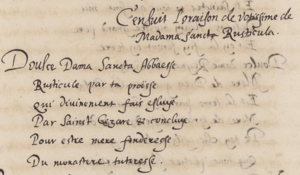 S'en suit l'oraison de
Madama Sancta Rusticula.
Doulce Dama Sancta Abbaesse
Rusticule par ta proësse
Qui diuinement fust esluye
Par Sainct Cezare & concluze
Pour estre mere
Du monastere tutresse.